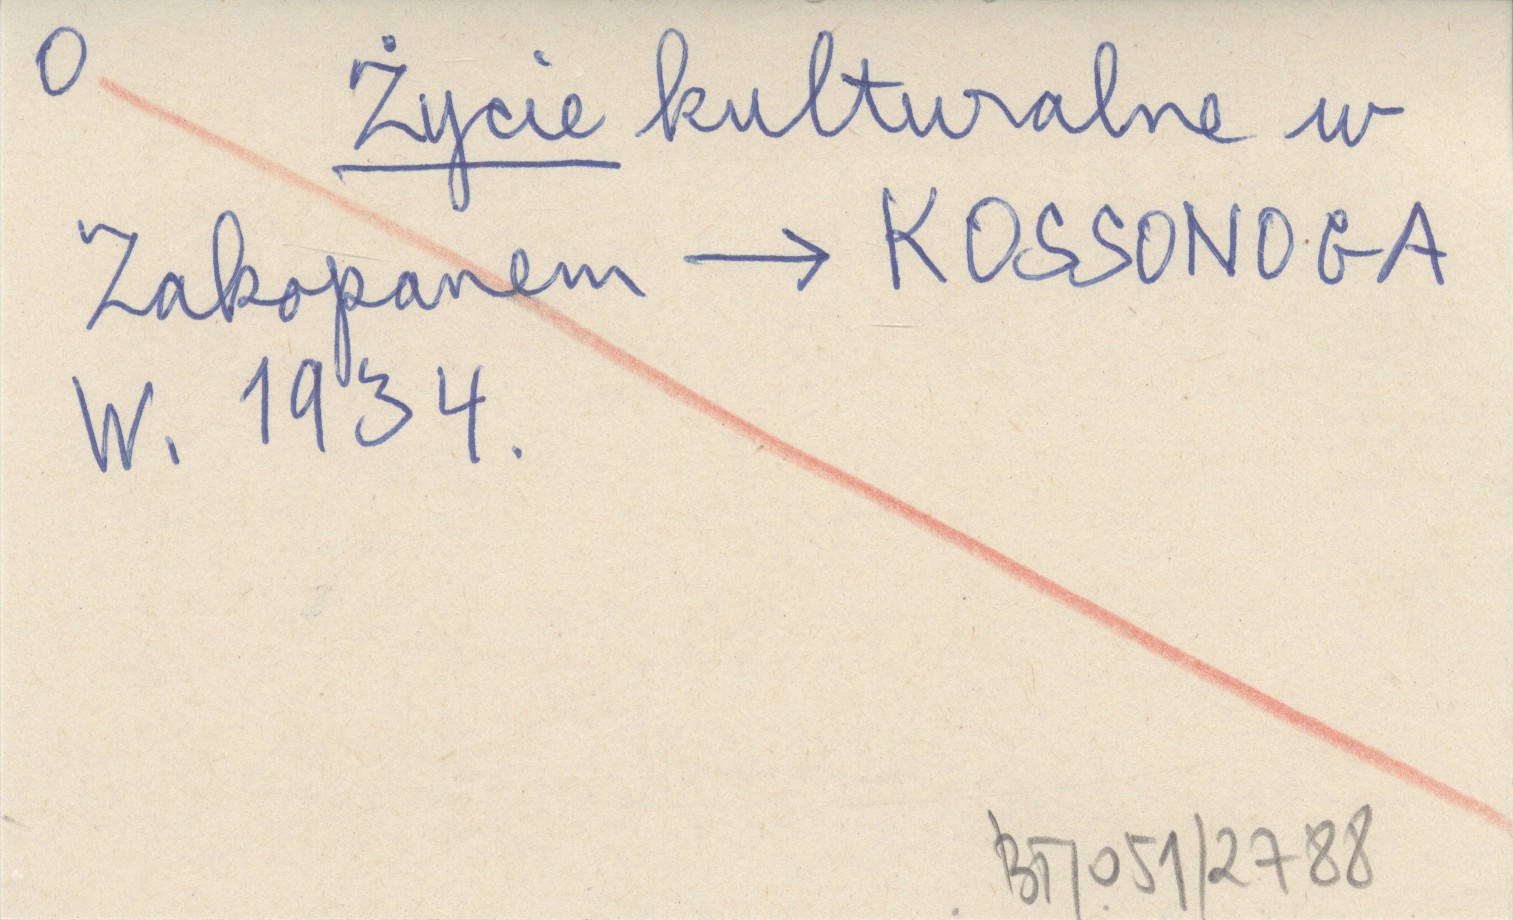 O Życie kulturalne w
Zakopanem → KOSSONOGA
W. 1934.
BT/051/2788